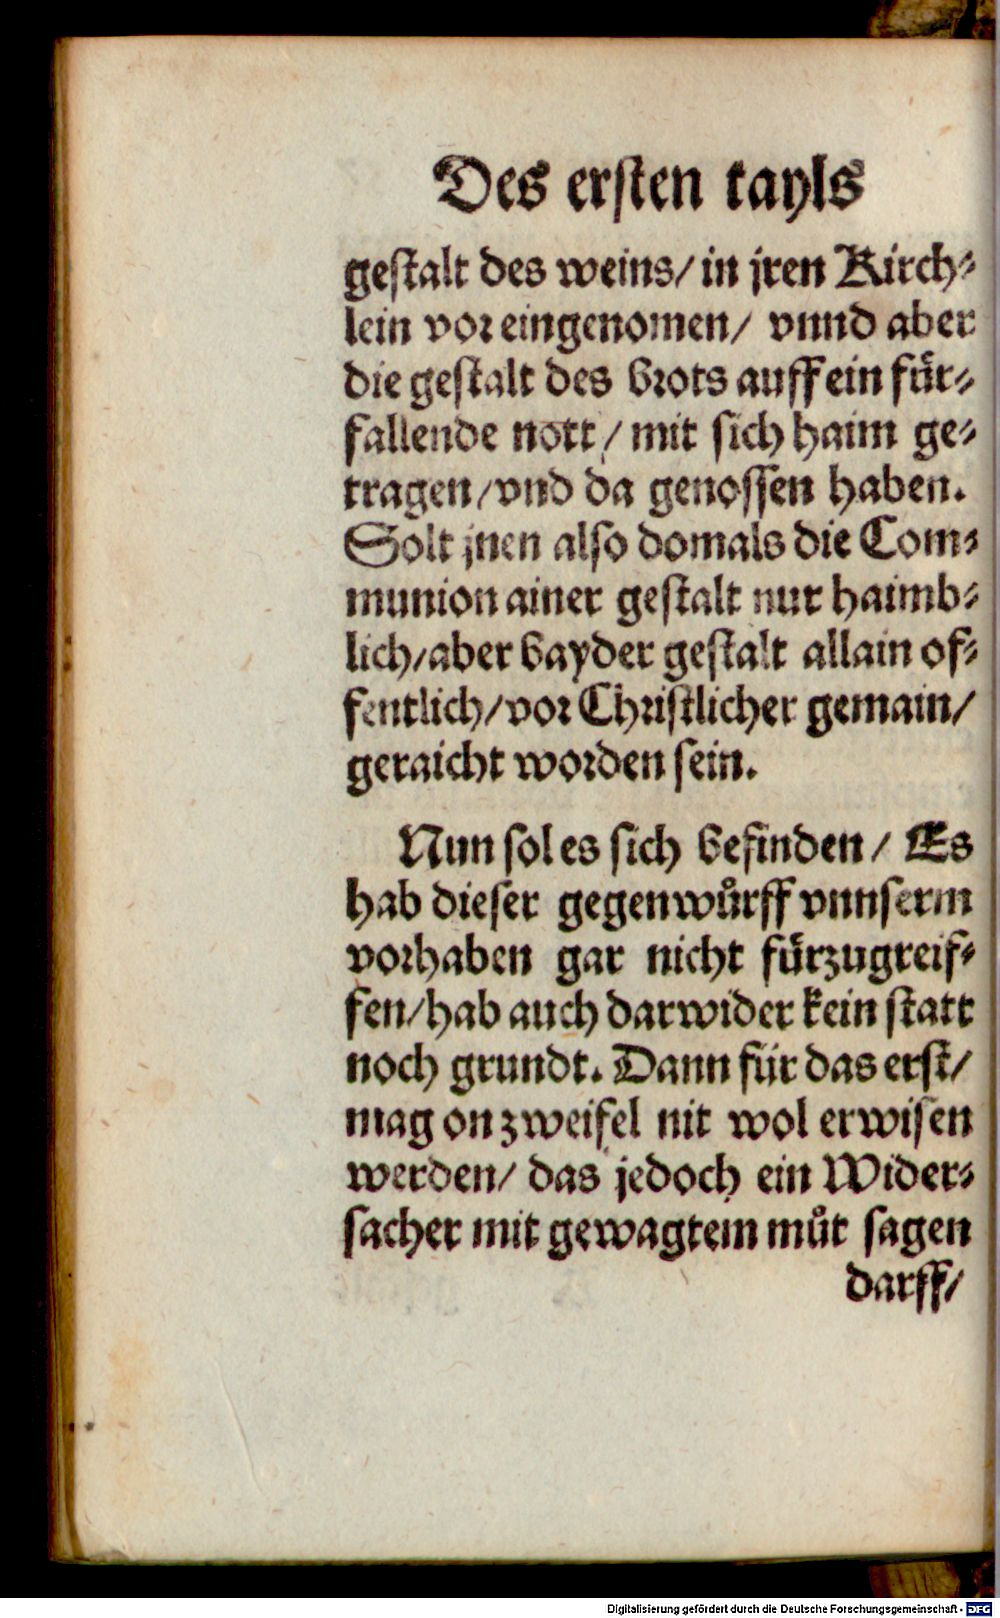 Des ersten tayls
gestalt des weins/ in jren Kirch⸗
lein vor eingenomen/ vnnd aber
die gestalt des brots auff ein für⸗
fallende nott/ mit sich haim ge⸗
tragen/vnd da genossen haben.
Solt jnen also domals die Com⸗
munion ainer gestalt nur haimb⸗
lich/aber bayder gestalt allain of⸗
fentlich/vor Christlicher gemain/
geraicht worden sein.
Nun sol es sich befinden/ Es
hab dieser gegenwůrff vnnserm
vorhaben gar nicht fürzugreif⸗
fen/hab auch darwider kein statt
noch grundt. Dann für das erst/
mag on zweifel nit wol erwisen
werden/ das jedoch ein Wider⸗
sacher mit gewagtem můt sagen
darff/
Digitalisierung gefördert durch die Deutsche Forschungsgemeinschaft - DFG